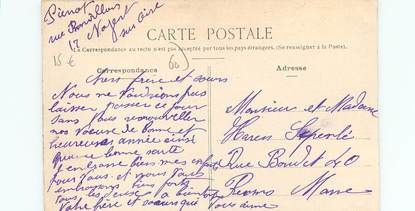 Pienot
rue
17 Nogent
sur Oise
15 €
60
CARTE POSTALE
La Correspondance au recto n'est pas acceptée par tous les pays étrangers. (Se renseigner à la Poste).
Correspondance
Adresse
cher frère et sœurs
Nous ne voudrions pas
laisser passer ce jour
sans vous renouveller
nos voeux de bonne et
heureuse année ainsi
que une bonne santé
et embrasse bien mes enfants
pour nous et nous vous
embrassons bien fort
tous les deux a bientot
votre frère et soeurs qui
vous aime
Monsieur et Madame
Rue Boudet 40
Marne